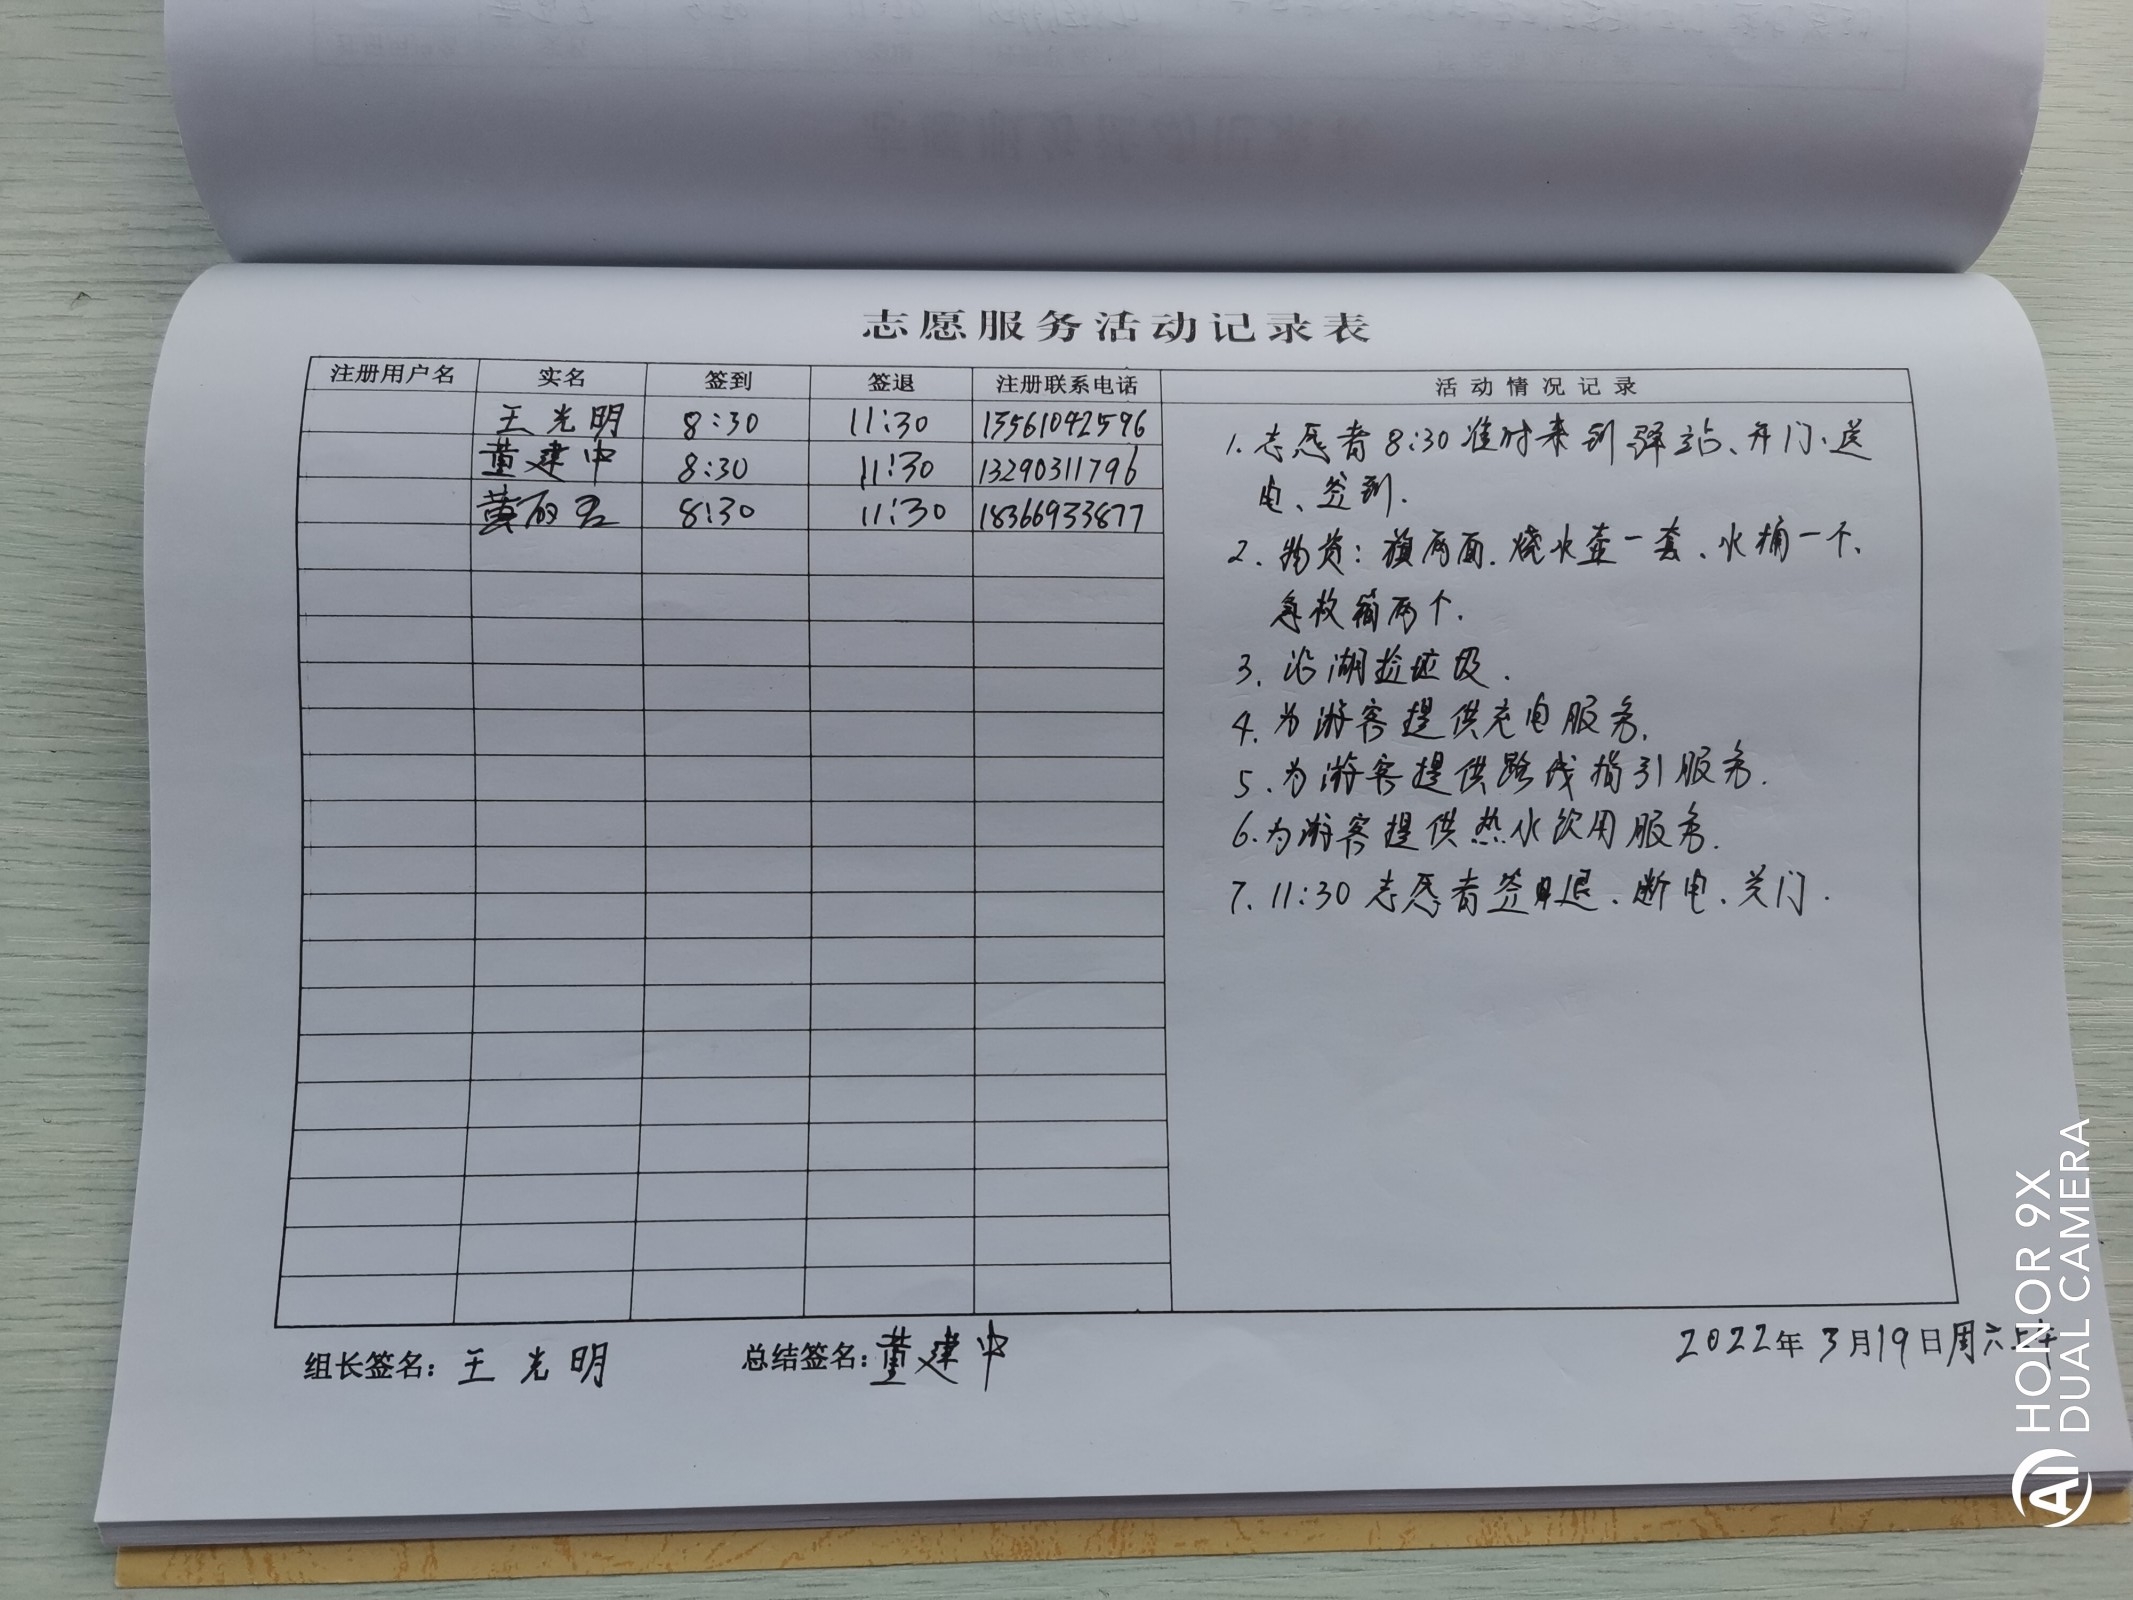 志愿服务活动记录表
注册用户名 实名 签到 签退 注册联系电话 活动情况记录
王光明 8:30 11:30 13561092596
董建中 8:30 11:30 13290311796
黄 8:30 11:30 18366933877
1.志愿者8:30准时来到驿站、开门、送
电、签到.
2.物资:旗两面.烧水壶一套、水桶一个、
急救箱两个.
3.沿湖捡垃圾.
4.为游客提供充电服务.
5.为游客提供路线指引服务.
6.为游客提供热水饮用服务.
7.11:30志愿者签退.断电、关门.
组长签名:王光明 总结签名:董建中 2022年3月19日周六上午
HONOR 9X
DUAL CAMERA
AI